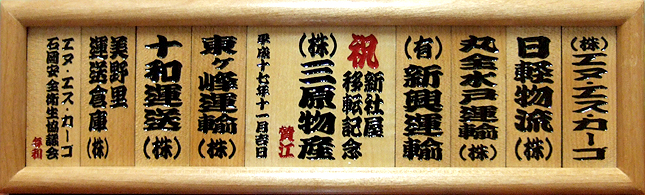 (株)エヌ・エス・カーゴ
日軽物流(株)
丸全水戸運輸(株)
(有)新興運輸
祝
新社屋
移転記念
(株)三原物産
賛江
平成十七年十一月吉日
東ヶ峰運輸(株)
十和運送(株)
美野里
運送倉庫(株)
エヌ・エス・カーゴ
石岡安全衛生協議会